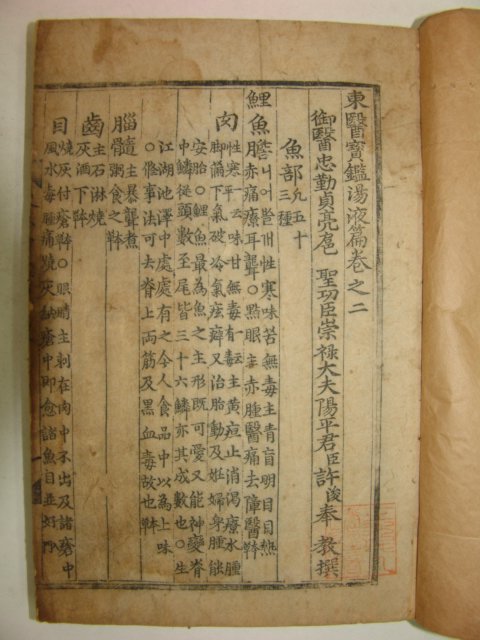 東醫寶鑑湯液篇卷之二
御醫忠勤貞亮扈 聖功臣崇祿大夫陽平君臣許浚奉 教撰
魚部 凡五十三種
鯉魚膽 性寒味苦無毒主青盲明目目熱
赤痛療耳聾○點眼主赤腫瞖痛去障瞖
肉 性寒平 味甘無毒 有 毒主黃疸止消渴療水腫
脚滿下氣破冷氣痃癖又治胎動及妊婦身腫能
安胎○鯉魚最為魚之主形旣可愛又能神變脊
中鱗從頭數至尾皆三十六鱗亦其成數也○生
江湖池澤中處處有之今人食品中以為上味
○修事法可去脊上兩筋及黑血毒故也
腦髓 主暴聾煮粥食之
骨
齒 主石淋燒灰酒下
目 燒灰付瘡 ○眼睛主刺在肉中不出及諸瘡中
風水毒腫痛燒灰納瘡中卽愈諸魚目並好